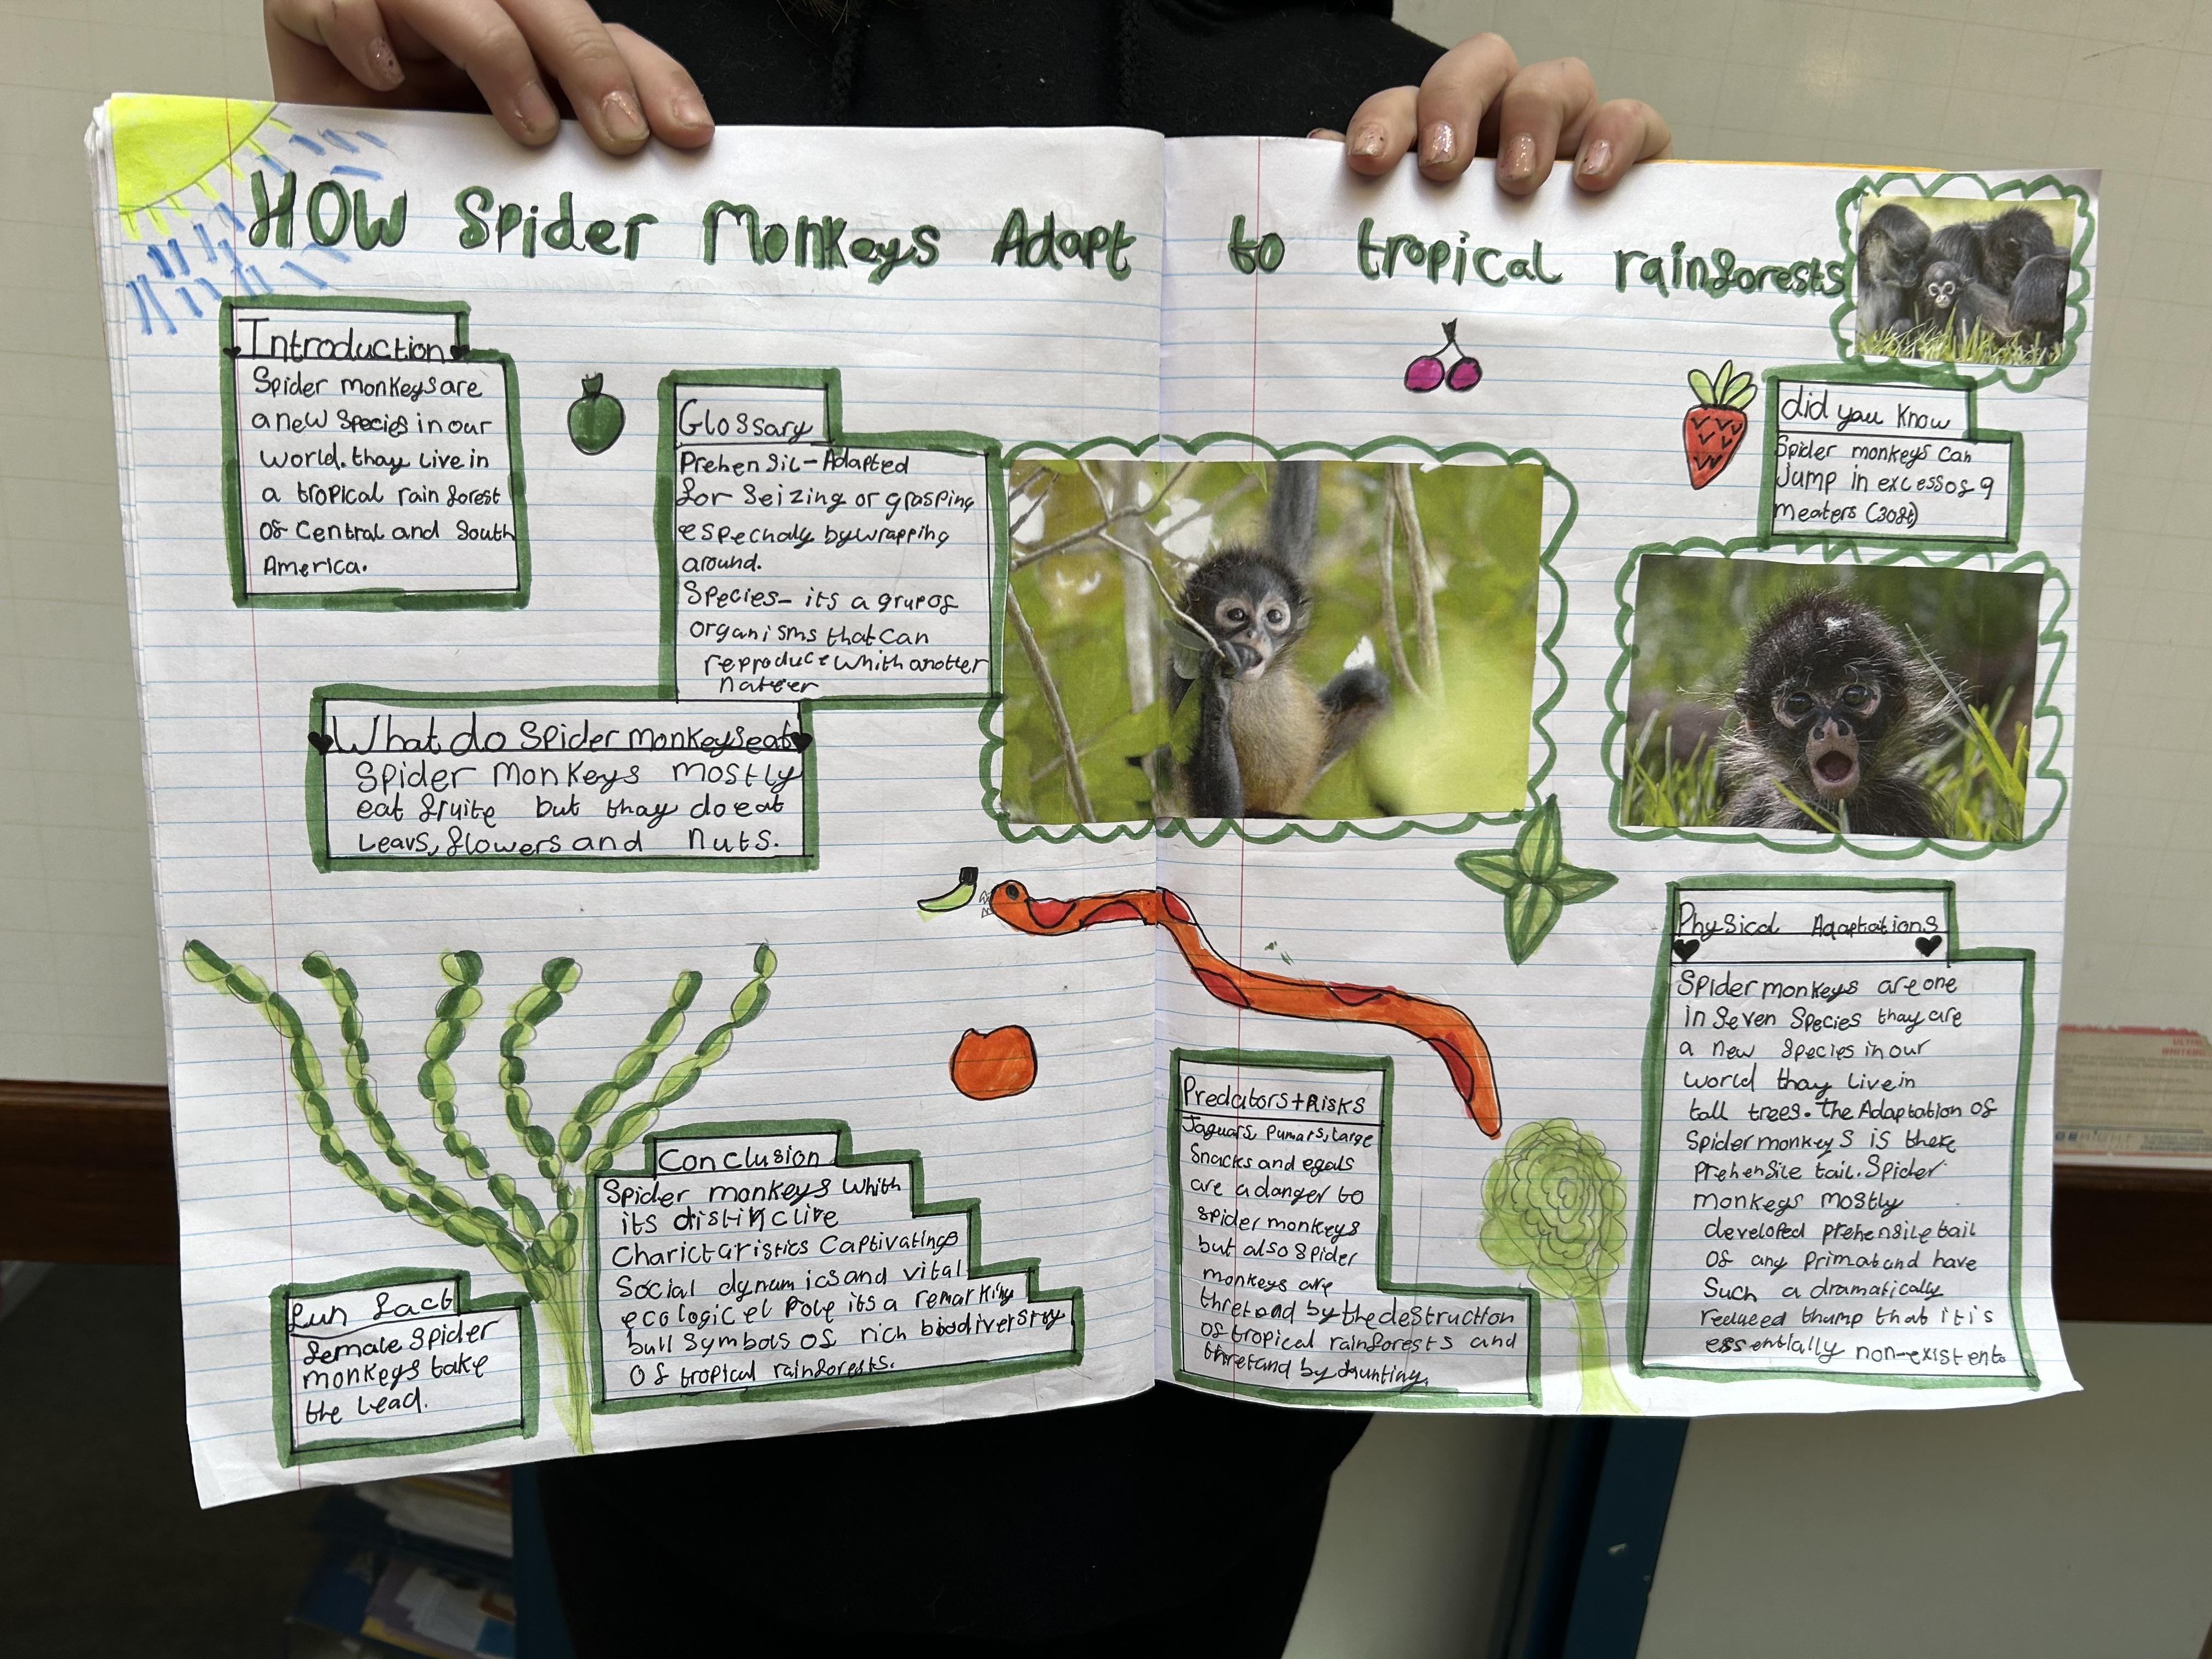 HOW Spider Monkeys Adapt to tropical rainforests
Introduction
Spider monkeys are
a new species in our
world. thay Live in
a tropical rain forest
of Central and South
America.
Glossary
Prehensil-Adapted
for seizing or grasping
espechaly by wrapping
around.
Species- its a grup of
organisms that can
reproduce whith another
nateer
What do Spider monkeys eat
Spider monkeys mostly
eat fruite but thay do eat
Leavs, flowers and nuts.
fun fact
female spider
monkeys take
the Lead.
Conclusion
Spider monkeys whith
its distinctive
Charictaristics Captivatings
Social dynamics and vital
ecologicel role its a remarking
bull symbols of rich biodiversity
of tropical rainforests.
did you know
Spider monkeys can
jump in excess of 9
meaters (30ft)
Predators + Risks
Jaguars, Pumars, Large
Snacks and egals
are a danger to
spider monkeys
but also spider
monkeys are
thretand by the destruction
of tropical rainforests and
thretand by huntiny.
Physical Adaptations
Spider monkeys are one
in seven species thay are
a new species in our
world thay Live in
tall trees. the Adaptation of
spider monkeys is there
prehensile tail. Spider
monkeys mostly
developed prehensile tail
of any primat and have
such a dramatically
reduced thump that it is
essentially non-existent